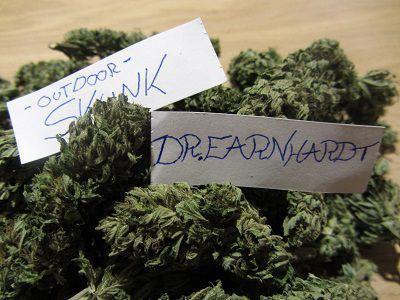 -OUTDOOR-
SKUNK
DR.EARNHARDT